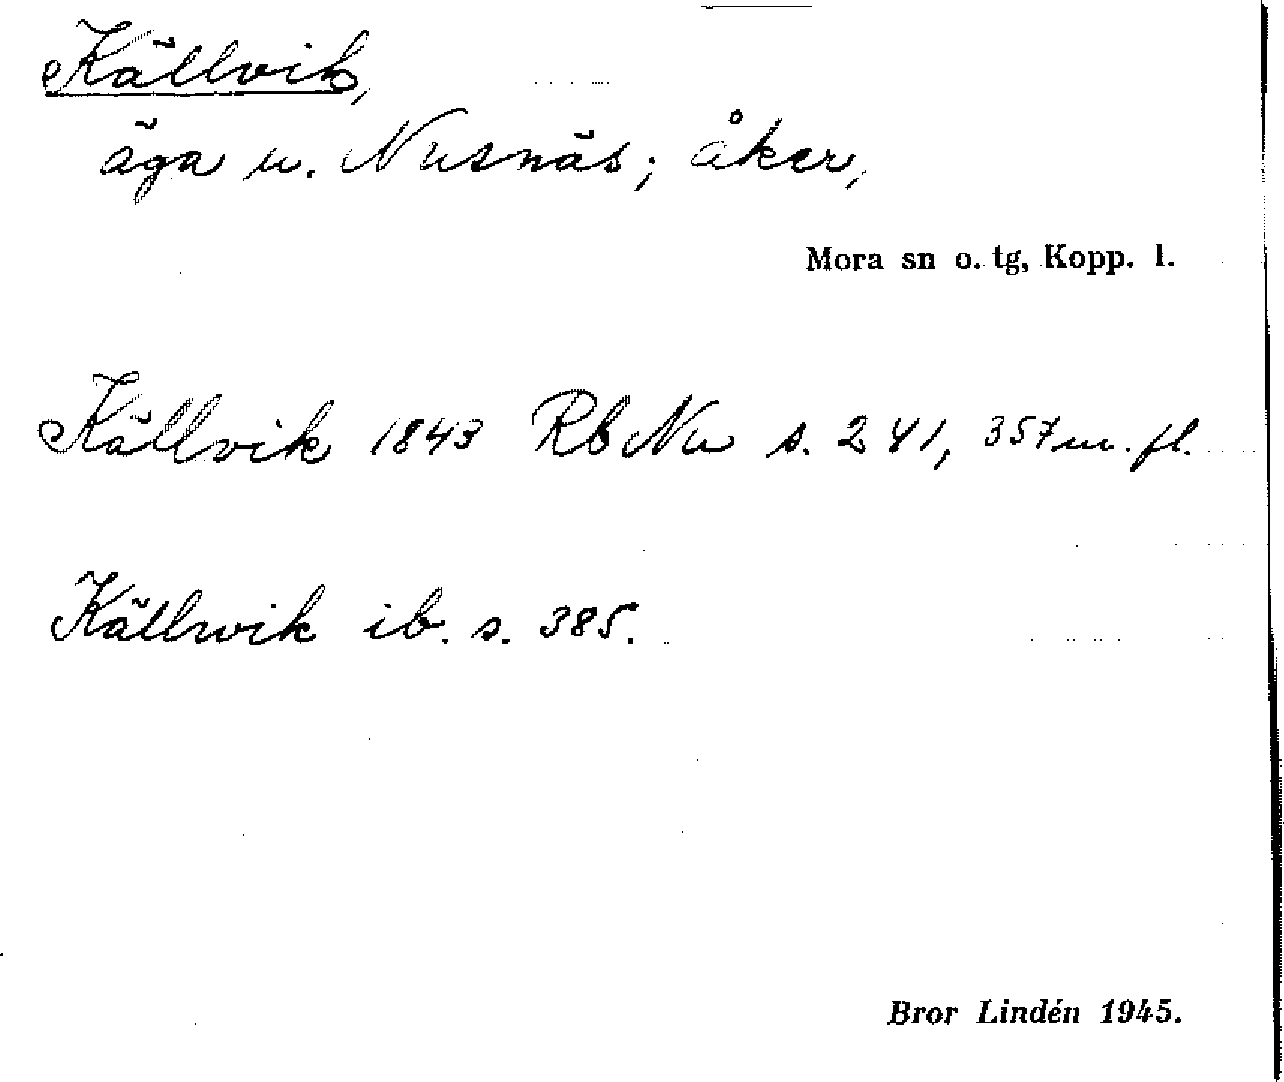 Källvik,
äga u. Nusnäs; åker,
Mora sn o. tg, Kopp. l.
Källvik 1843 RbNu s. 241, 357 m. fl.
Källwik ib. s. 385.
Bror Lindén 1945.